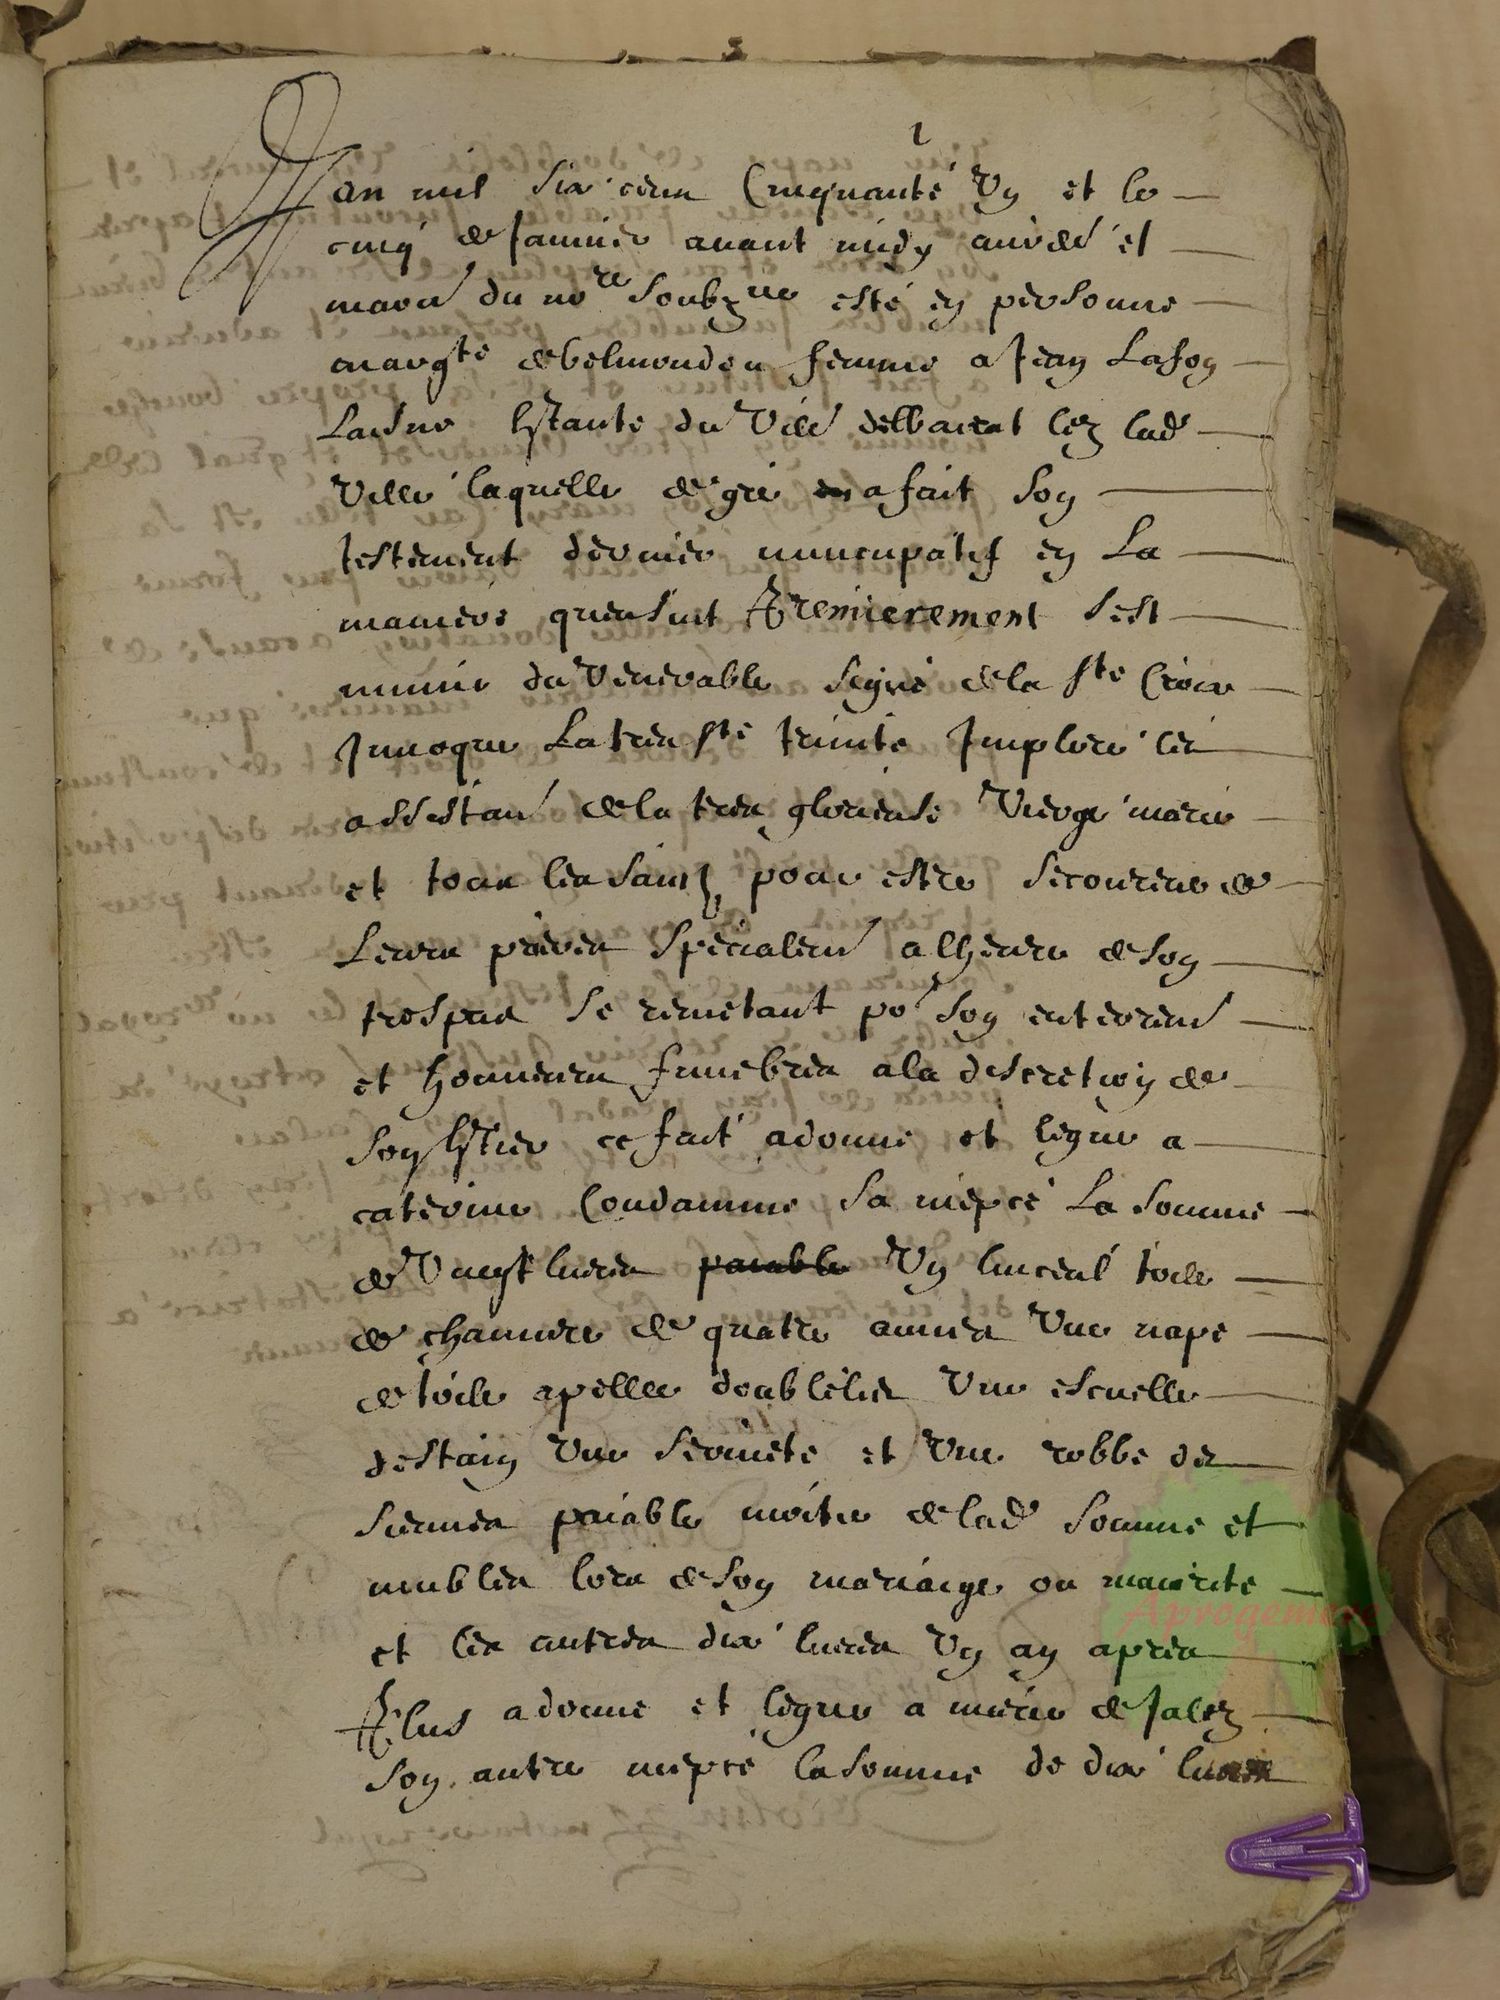 1
Lan mil six cens Cinquante Vn et le
cinq de Januier auant midy
du nore soubzne esté en personne
margte debelmondes femme a Jean Lafon
Laisne du lez lad
Ville laquelle de gré a fait son
testement dernier nuncupatif en La
maniere quensuit Premierement sest
munie du Venerable signe dela ste Croix
Inuoque La tres ste trinite Implore les
assistan dela tres glorieuse Vierge marie
et tous les saintz pour estre secourue de
Leurs prieres specialem a lheure deson
trespas se remetant po son enterrem
et honneurs funebres ala discretion de
son htier ce fait adonne et legue a
caterine Condamine sa niepce La somme
de Vingt liures paiable Vn linceul toile
de chanure de quatre aunes Vne nape
detoile apellee doublelie Vne escuelle
destain Vne seruiete et Vne robbe des
siennes paiable moitie delad somme et
meubles lors deson mariaige ou maiorite
et les autres dix liures Vn an apres
Plus adonne et legue a marie deJales
son autre niepce lasomme de dix liures
Aprogemere